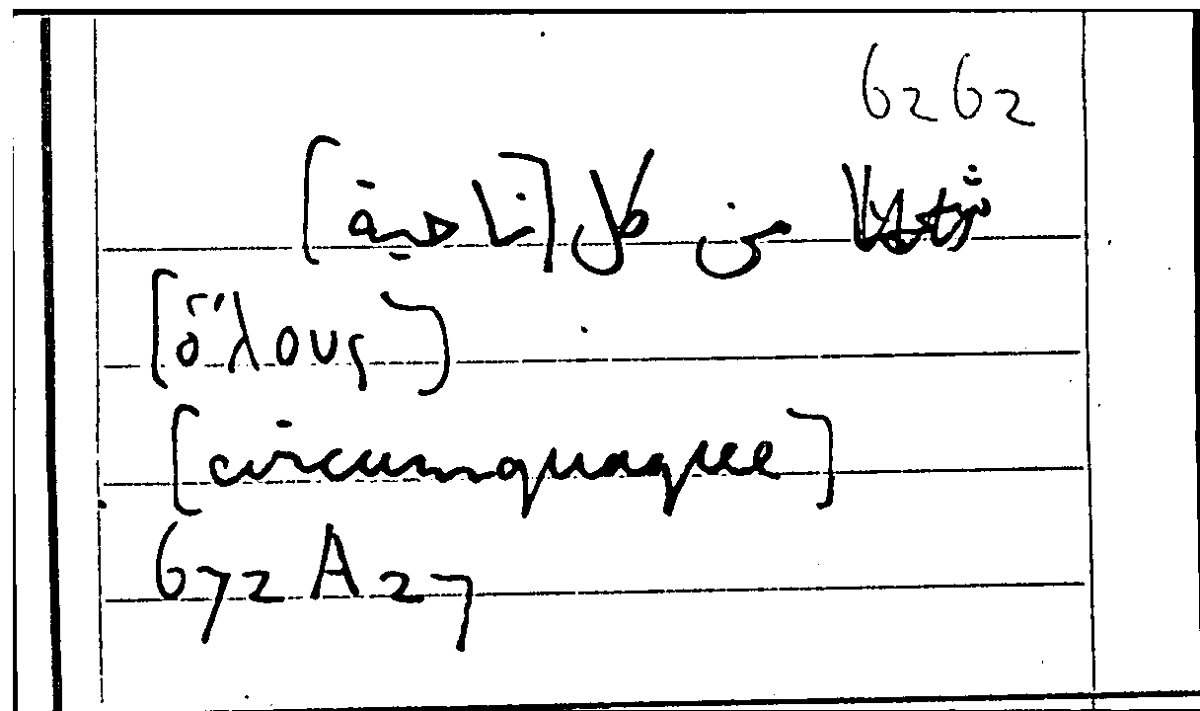 6262
من كل [ناحية]
[ὅλους]
[circumquaque]
672 A 27